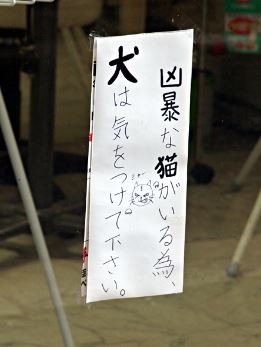 凶暴な猫がいる為、
犬は気をつけて下さい。